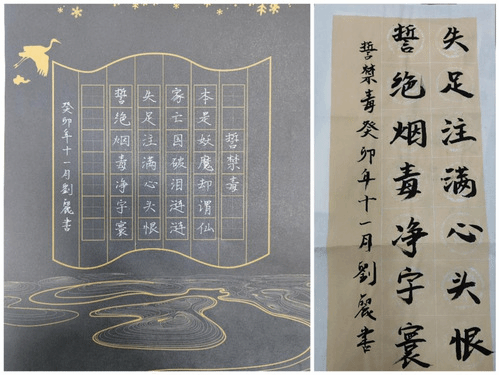 誓禁毒
本是妖魔却谓仙
家亡国破泪涟涟
失足注满心头恨
誓绝烟毒净字寰
癸卯年十一月劉麗書
失足注满心头恨
誓绝烟毒净字寰
誓禁毒癸卯年十一月劉麗書